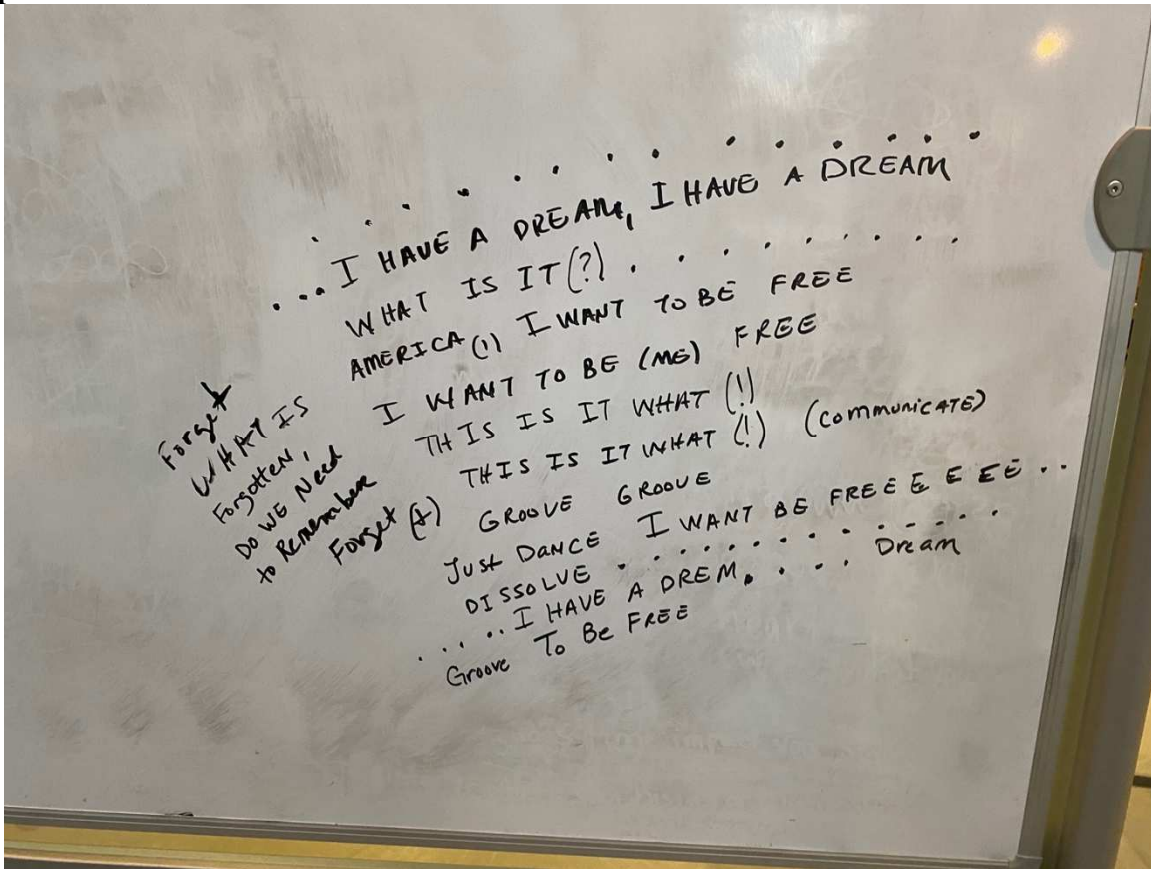 . . . . . . . . . . . . .
...I HAVE A DREAM, I HAVE A DREAM
WHAT IS IT(?) . . . . . . . .
AMERICA (!) I WANT TO BE FREE
I WANT TO BE (ME) FREE
THIS IS IT WHAT (!)
THIS IS IT WHAT (!) (COMMUNICATE)
GROOVE GROOVE
JUSt DANCE I WANT BE FREE E E E E . .
DISSOLVE . . . . . . . . . . . .
. . . . . I HAVE A DREM. . . . . Dream
Groove To Be FREE
Forget
WHAT IS
Forgotten,
Do WE Need
to Remember
Forget